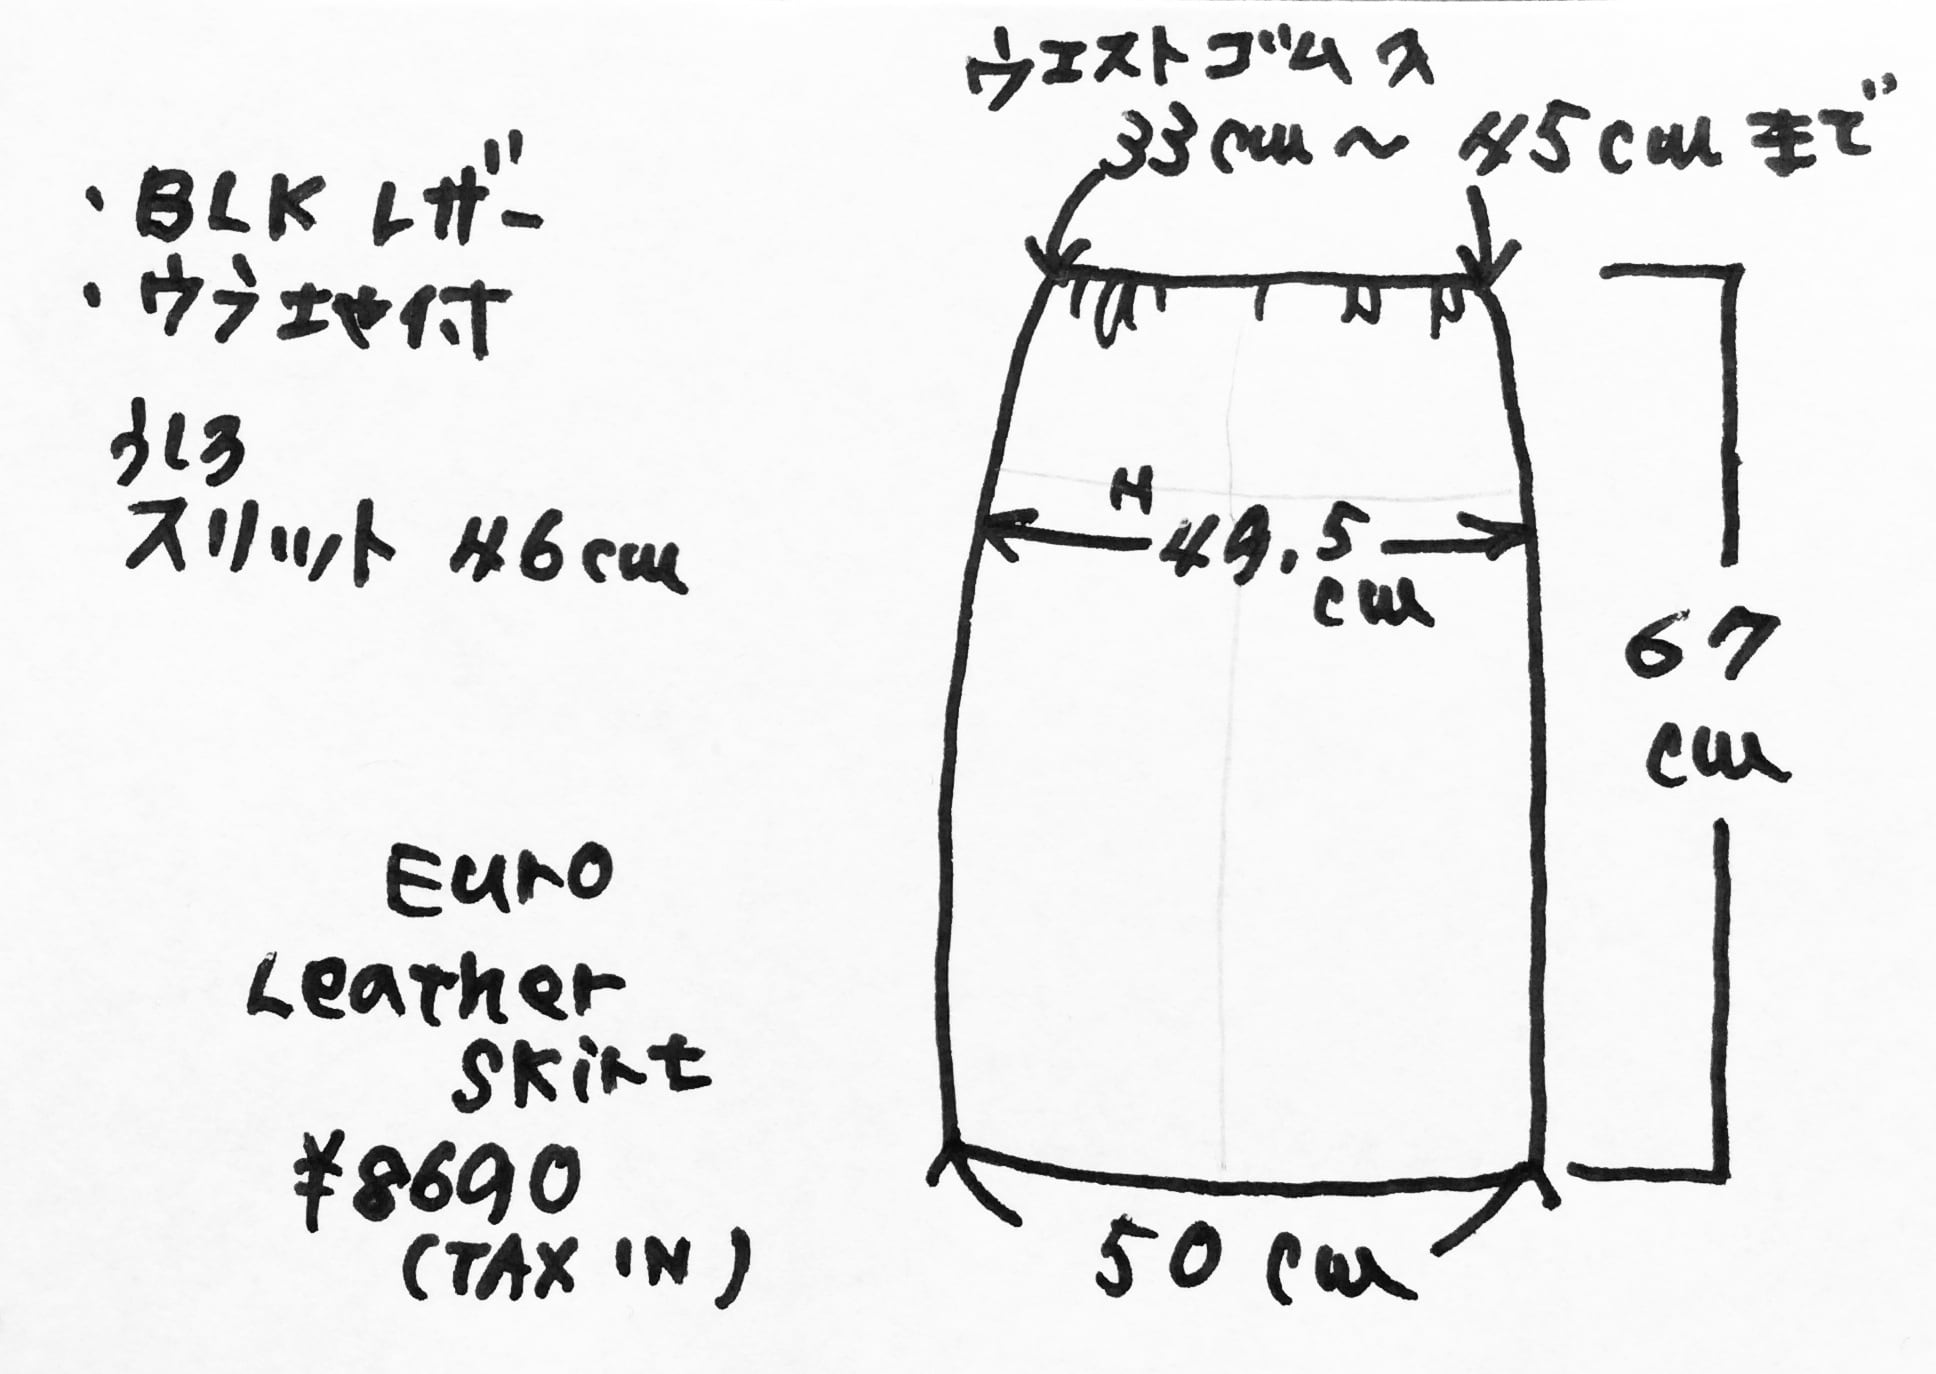 ・BLK レザー
・ウラ地付
うしろ
スリット 46cm
Euro
Leather
Skirt
¥8690
(TAX IN)
ウエストゴム入
33cm〜45cmまで
H
49.5
cm
67
cm
50cm